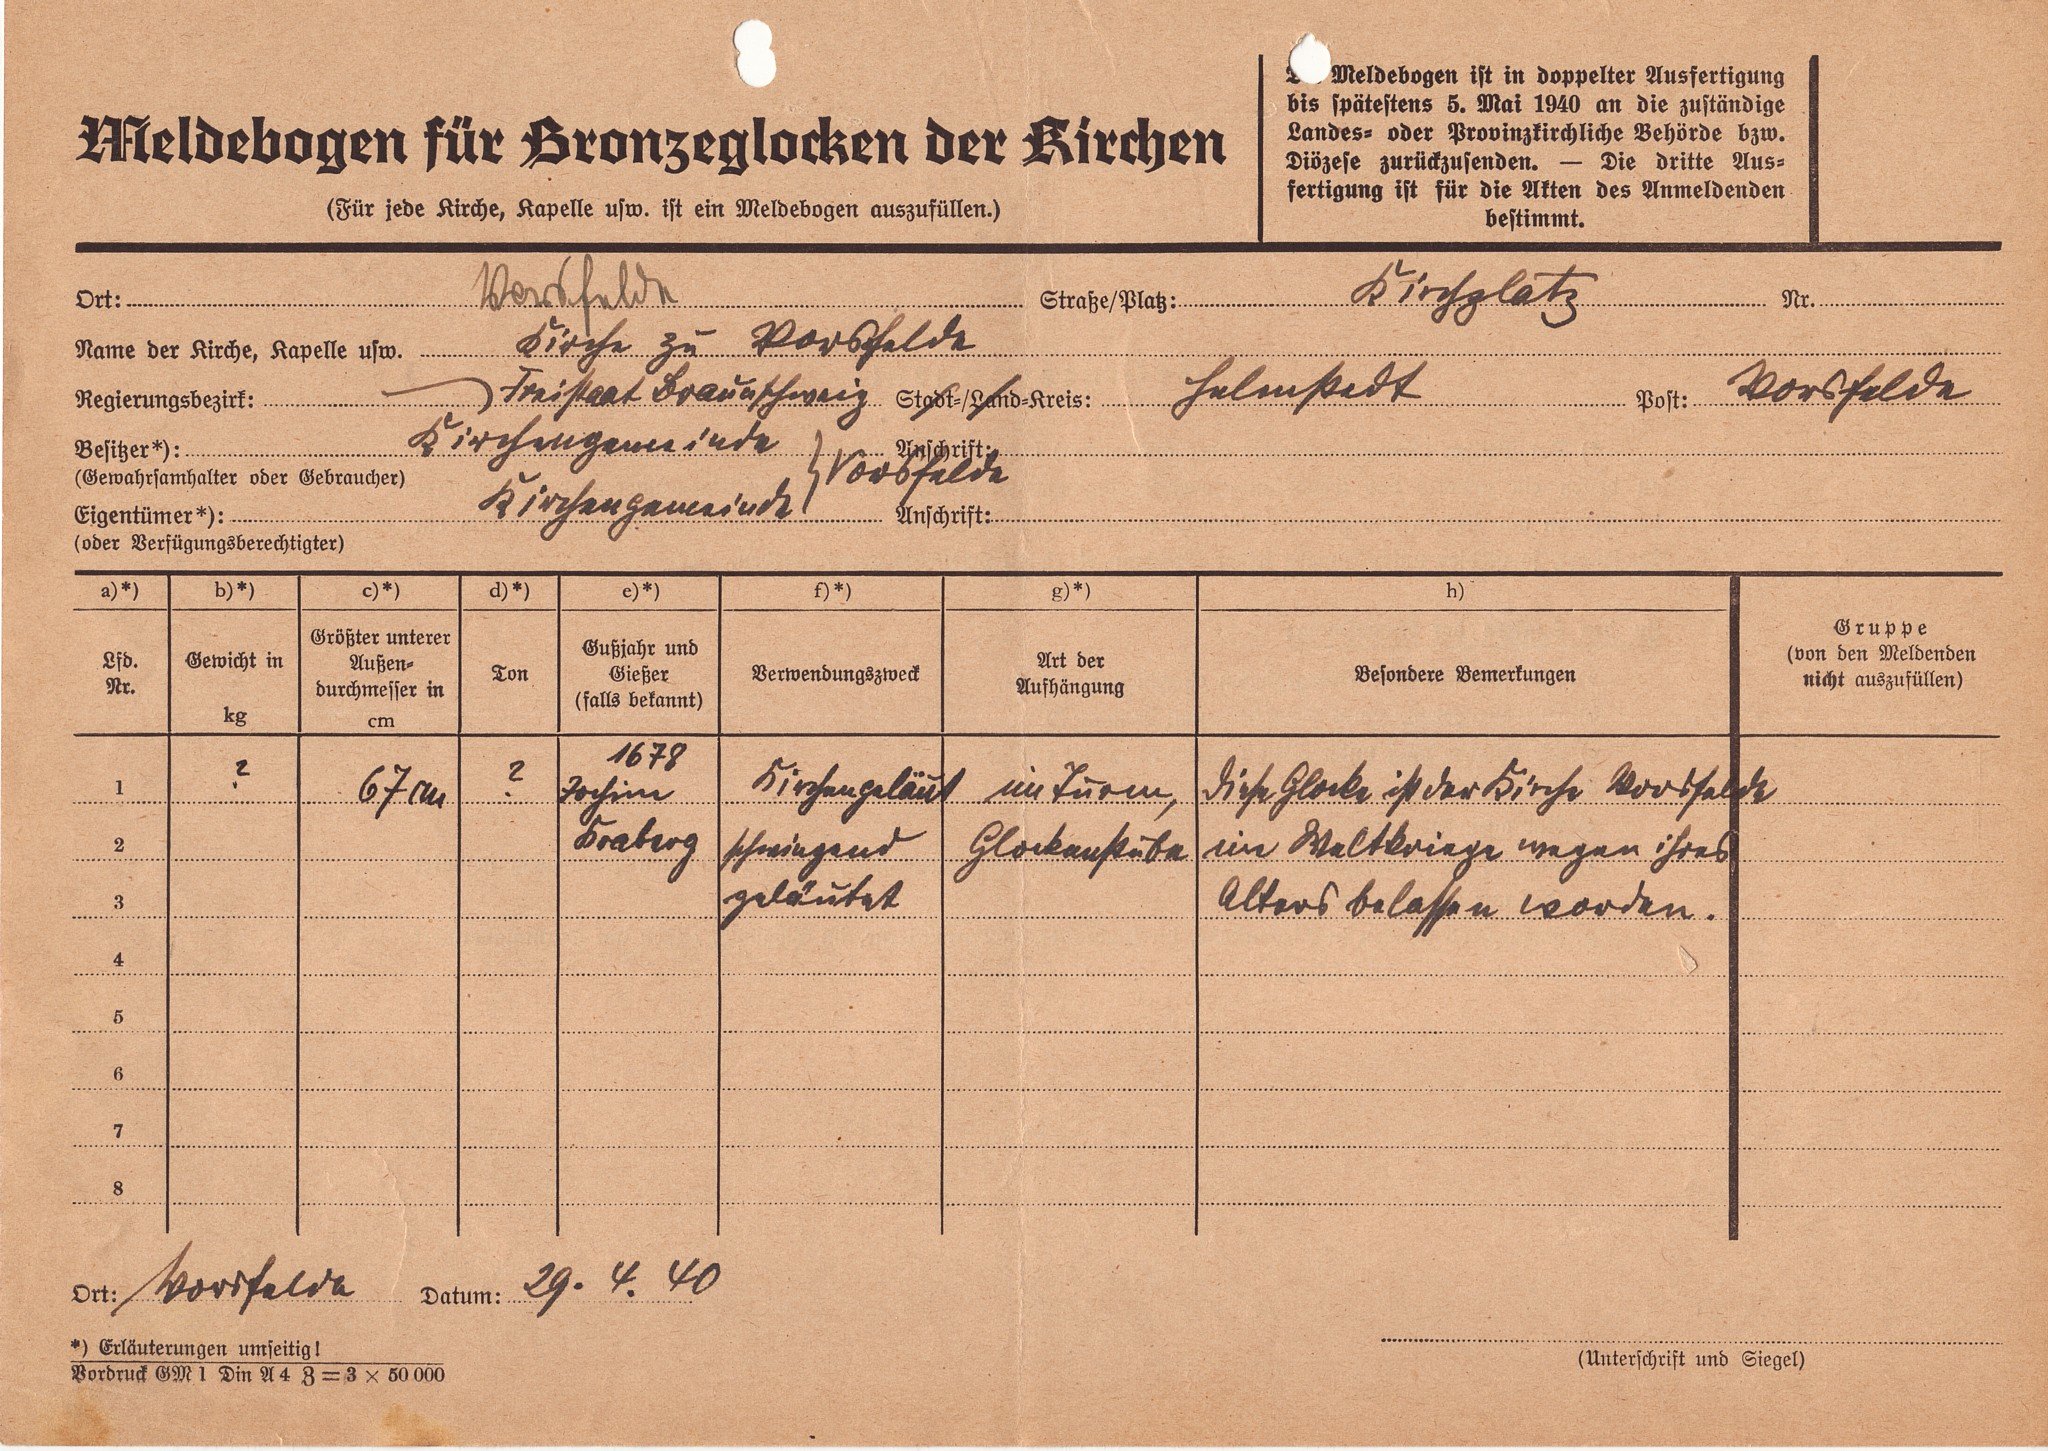 Meldebogen für Bronzeglocken der Kirchen
(Für jede Kirche, Kapelle usw. ist ein Meldebogen auszufüllen.)
Meldebogen ist in doppelter Ausfertigung
bis spätestens 5. Mai 1940 an die zuständige
Landes= oder Provinzkirchliche Behörde bzw.
Diözese zurückzusenden. — Die dritte Aus=
fertigung ist für die Akten des Anmeldenden
bestimmt.
Ort: Vorsfelde Straße/Platz: Kirchplatz Nr.
Name der Kirche, Kapelle usw. Kirche zu Vorsfelde
Regierungsbezirk: Freistaat Braunschweig Stadt=/Land=Kreis: Helmstedt Post: Vorsfelde
Besitzer*): Kirchengemeinde Anschrift:
(Gewahrsamhalter oder Gebraucher) Vorsfelde
Eigentümer*): Kirchengemeinde Anschrift:
(oder Verfügungsberechtigter)
a)*) b)*) c)*) d)*) e)*) f)*) g)*) h)
Lfd. Nr.
Gewicht in kg
Größter unterer Außen= durchmesser in cm
Ton
Gußjahr und Gießer (falls bekannt)
Verwendungszweck
Art der Aufhängung
Besondere Bemerkungen
Gruppe
(von den Meldenden
nicht auszufüllen)
1678
1 ? 67 cm ? Jochim Kirchengeläut im Turm, Diese Glocke ist der Kirche Vorsfelde
2 Kraberg schwingend Glockenstube im Weltkriege wegen ihres
3 geläutet Alters belassen worden.
4
5
6
7
8
Ort: Vorsfelde Datum: 29. 4. 40
*) Erläuterungen umseitig!
Vordruck GM 1 Din A 4 3 = 3 × 50 000
(Unterschrift und Siegel)